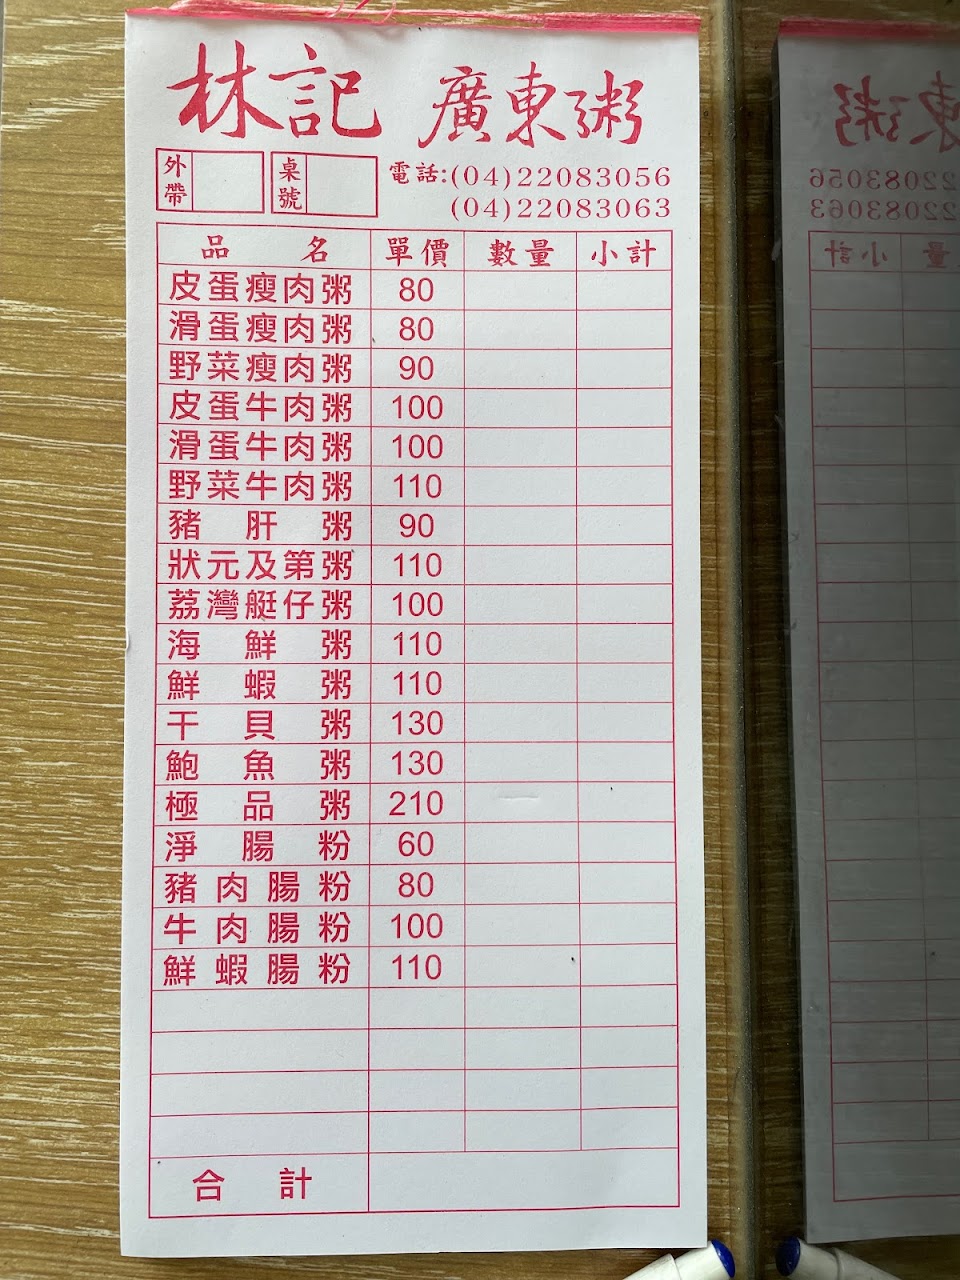 林記 廣東粥
外帶 桌號 電話:(04)22083056
(04)22083063
品名 單價 數量 小計
皮蛋瘦肉粥 80
滑蛋瘦肉粥 80
野菜瘦肉粥 90
皮蛋牛肉粥 100
滑蛋牛肉粥 100
野菜牛肉粥 110
豬肝粥 90
狀元及第粥 110
荔灣艇仔粥 100
海鮮粥 110
鮮蝦粥 110
干貝粥 130
鮑魚粥 130
極品粥 210
淨腸粉 60
豬肉腸粉 80
牛肉腸粉 100
鮮蝦腸粉 110
合計